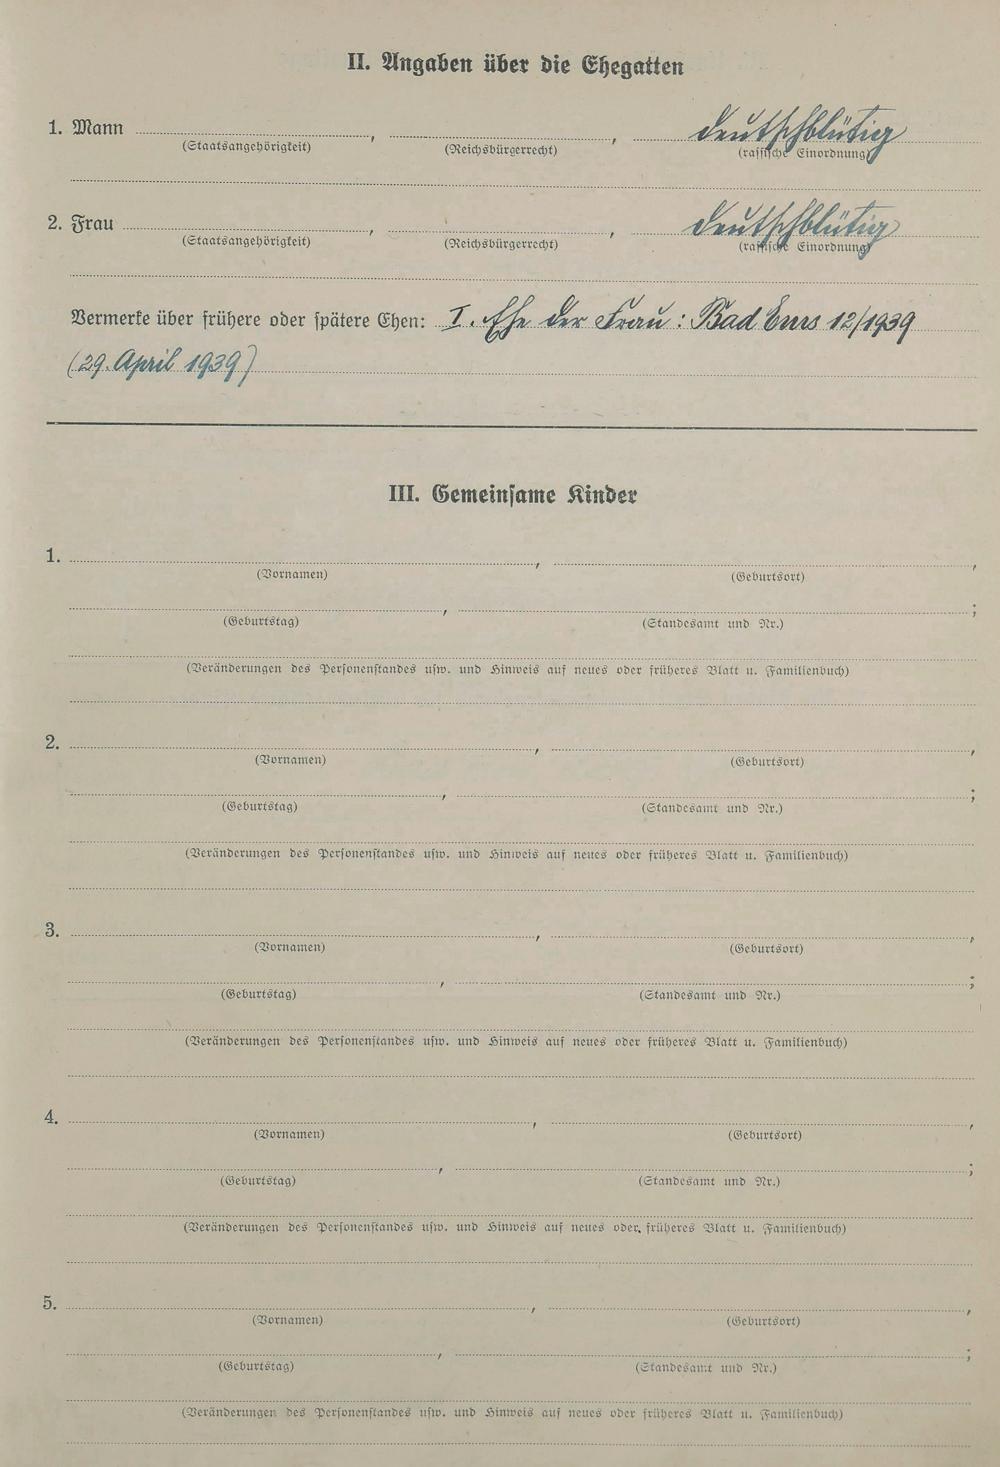 II. Angaben über die Ehegatten
1. Mann , , deutschblütig
(Staatsangehörigkeit) (Reichsbürgerrecht) (rassische Einordnung)
2. Frau , , deutschblütig
(Staatsangehörigkeit) (Reichsbürgerrecht) (rassische Einordnung)
Vermerke über frühere oder spätere Ehen: I. Ehe der Frau: Bad Ems 12/1939
(29. April 1939)
III. Gemeinsame Kinder
1. , ,
(Vornamen) (Geburtsort)
, ;
(Geburtstag) (Standesamt und Nr.)
(Veränderungen des Personenstandes usw. und Hinweis auf neues oder früheres Blatt u. Familienbuch)
2. , ,
(Vornamen) (Geburtsort)
, ;
(Geburtstag) (Standesamt und Nr.)
(Veränderungen des Personenstandes usw. und Hinweis auf neues oder früheres Blatt u. Familienbuch)
3. , ,
(Vornamen) (Geburtsort)
, ;
(Geburtstag) (Standesamt und Nr.)
(Veränderungen des Personenstandes usw. und Hinweis auf neues oder früheres Blatt u. Familienbuch)
4. , ,
(Vornamen) (Geburtsort)
, ;
(Geburtstag) (Standesamt und Nr.)
(Veränderungen des Personenstandes usw. und Hinweis auf neues oder früheres Blatt u. Familienbuch)
5. , ,
(Vornamen) (Geburtsort)
, ;
(Geburtstag) (Standesamt und Nr.)
(Veränderungen des Personenstandes usw. und Hinweis auf neues oder früheres Blatt u. Familienbuch)